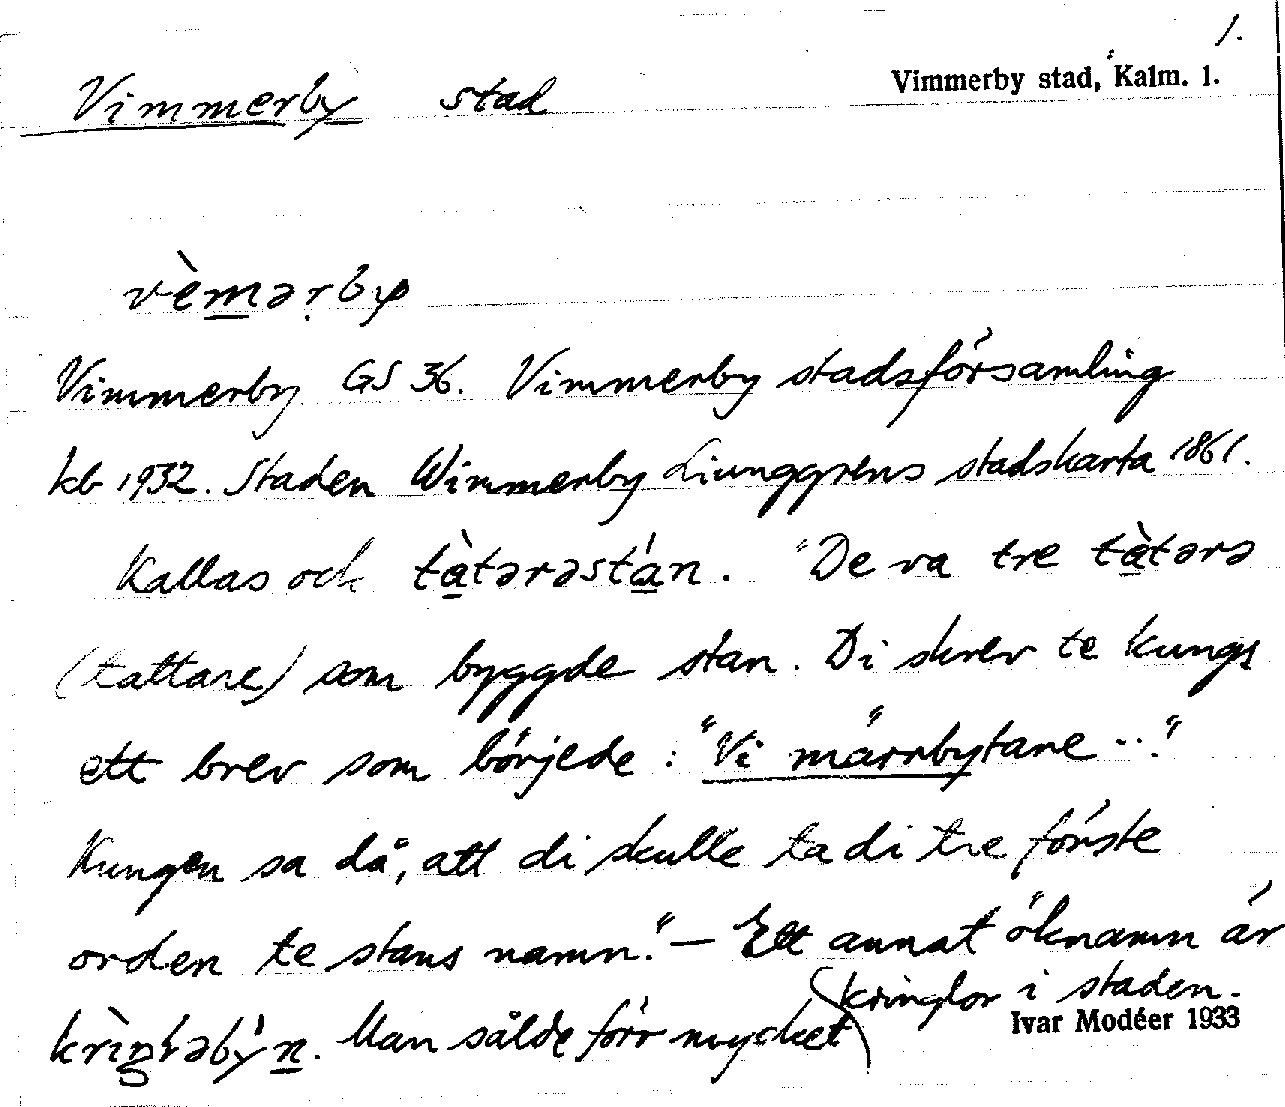 1.
Vimmerby stad
Vimmerby stad, Kalm. 1.
vèmərby
Vimmerby GS 36. Vimmerby stadsförsamling
kb 1932. Staden Wimmerby Ljunggrens stadskarta 1861.
Kallas och tàtərəstán. "De va tre tàtərə
(tattare) som byggde stan. Di skrev te kungs
ett brev som börjede: "Vi märrbytare ..."
Kungen sa då, att di skulle ta di tre förste
orden te stans namn." — Ett annat öknamn är
krìŋləbýn. Man sålde förr mycket kringlor i staden.
Ivar Modéer 1933